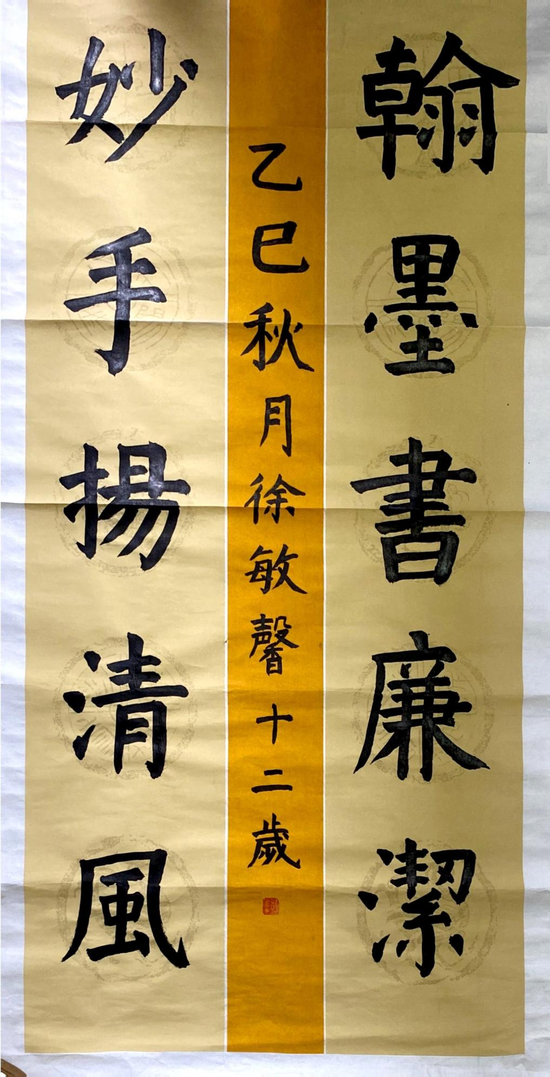 翰墨書廉潔
妙手揚清風
乙巳秋月徐敏馨十二歲